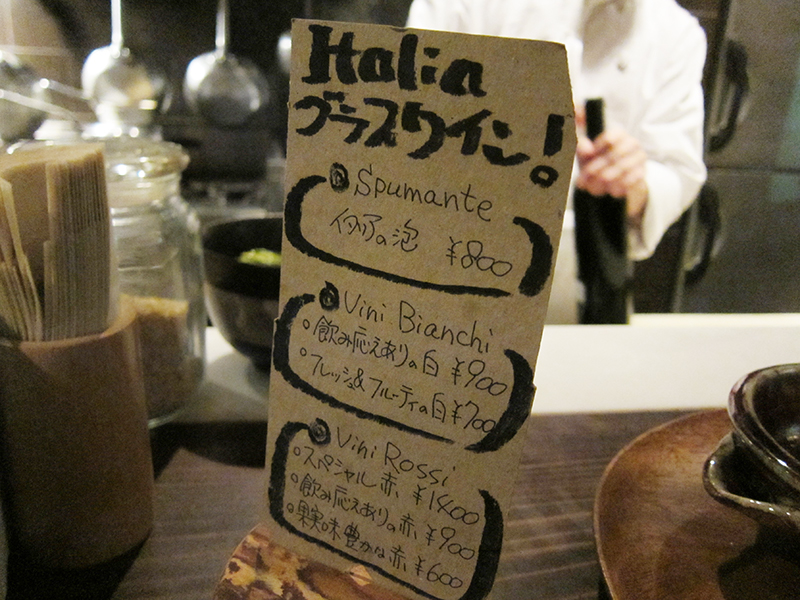 Italia
グラスワイン!
Spumante
イタリアの泡 ¥800
Vini Bianchi
。飲み応えありの白 ¥900
。フレッシュ&フルーティの白 ¥700
Vini Rossi
。スペシャル赤 ¥1400
。飲み応えありの赤 ¥900
。果実味豊かな赤 ¥600